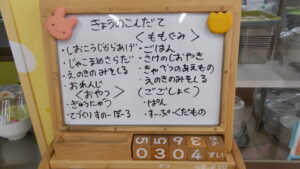 きょうのこんだて
<ももぐみ>
・しおこうじからあげ
・じゃこまめさらだ
・えのきのみそしる
・おれんじ
<おやつ>
・ぎゅうにゅう
・てづくりすのーぼーる
・ごはん
・さけのしおやき
・きゃべつのあえもの
・えのきのみそしる
(ごごしょく)
・ぱん
・すーぷ・くだもの
0304
すい